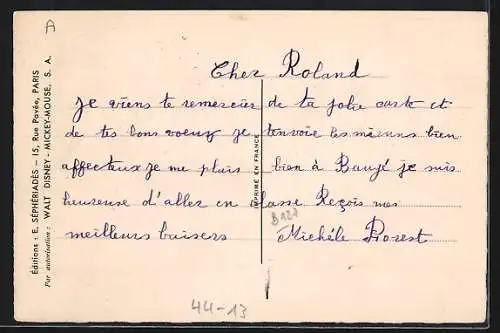 A
Cher Roland
Je viens te remercier de ta jolie carte et
de tes bons voeux je t'envoie les miens bien
affectueux je me plais bien à Baugé je suis
heureuse d'aller en classe Reçois mes
meilleurs baisers Michèle
Éditions : E. SÉPHÉRIADÈS — 15, Rue Pavée, PARIS
Par autorisation : WALT DISNEY - MICKEY-MOUSE, S. A.
IMPRIMÉ EN FRANCE
44-13